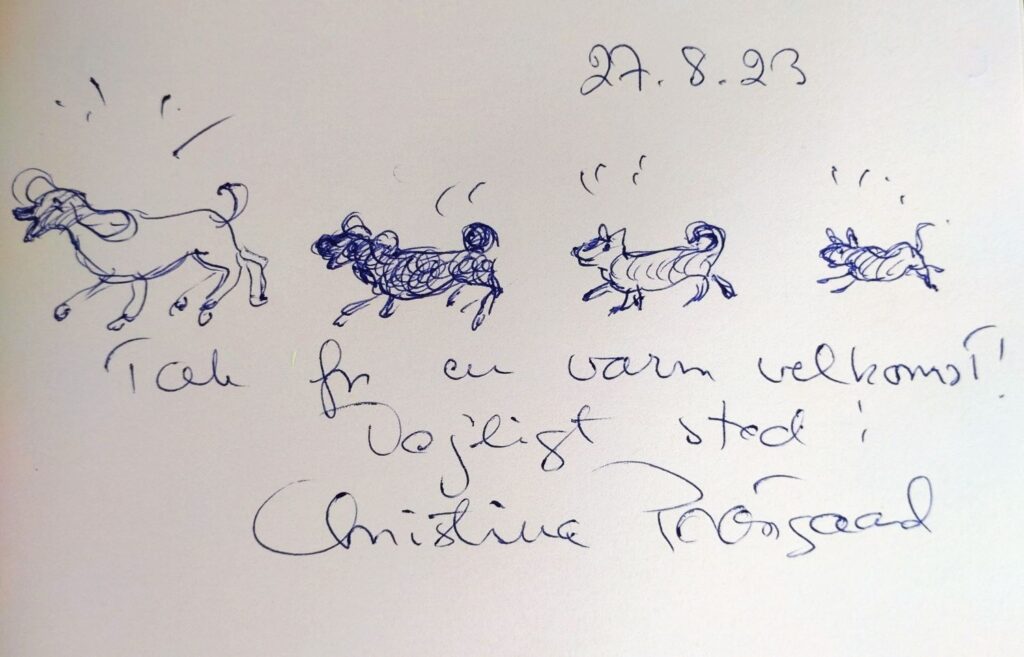 27.8.23
Tak for en varm velkomst!
Dejligt sted!
Christina